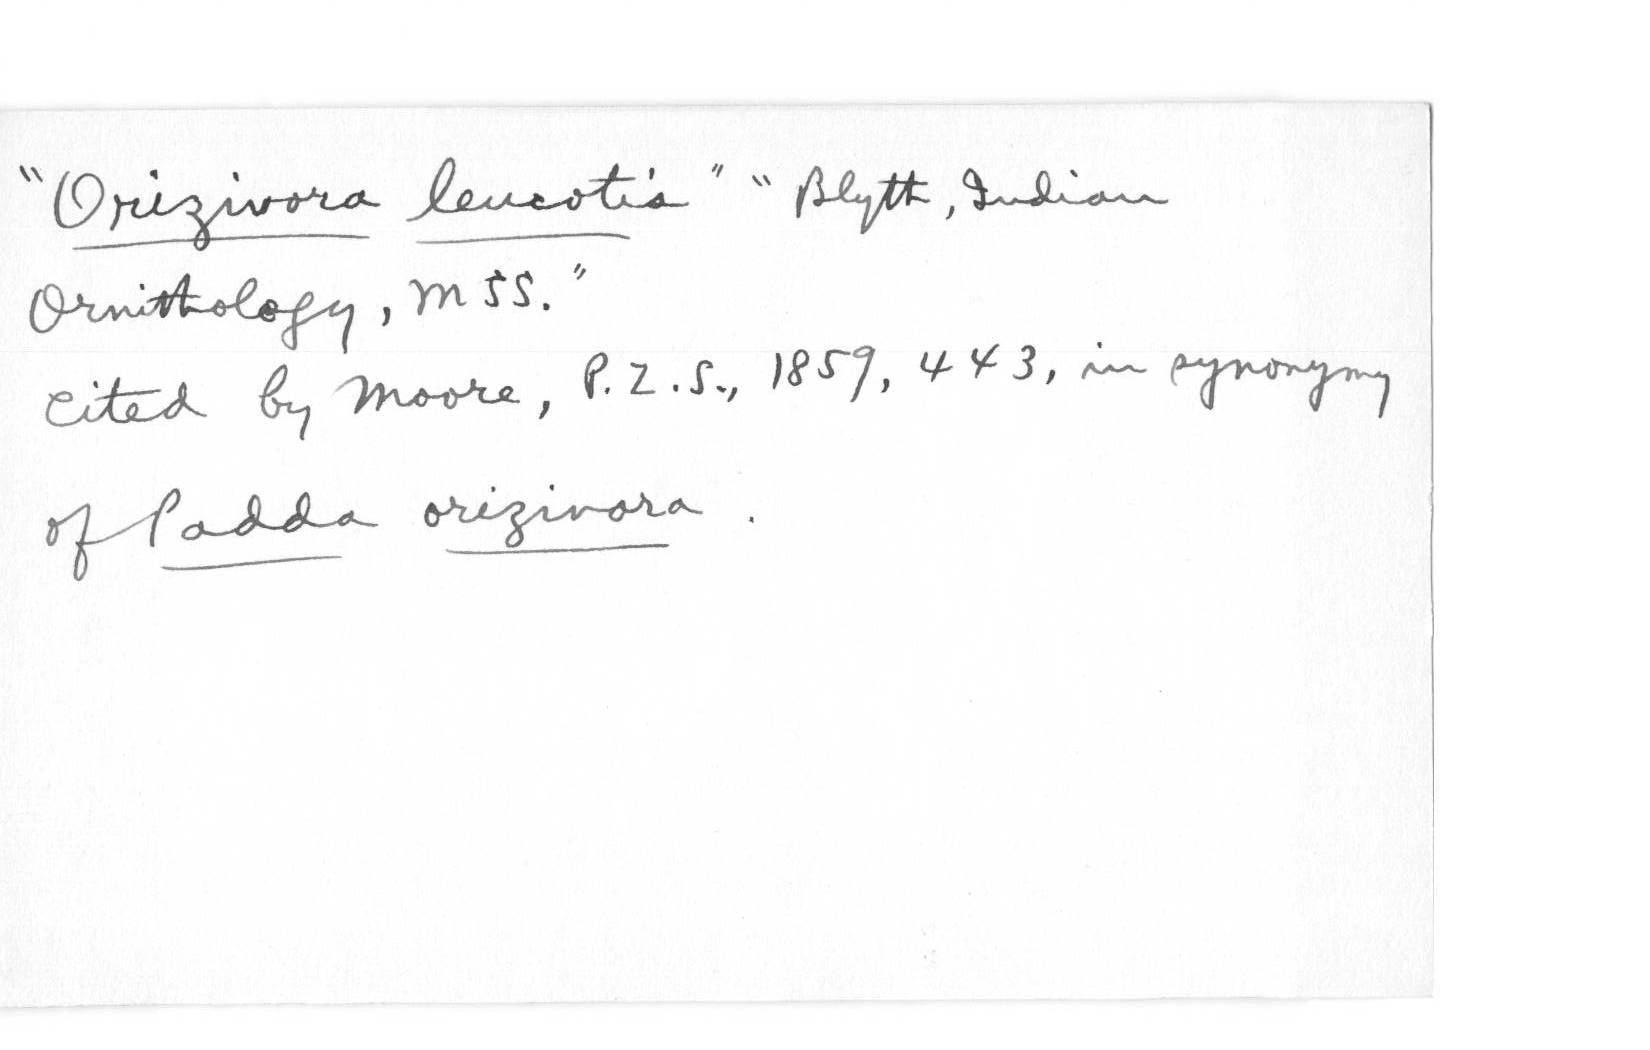 "Orizivora leucotis" "Blyth, Indian
Ornithology, MSS."
cited by Moore, P.Z.S., 1859, 443, in synonymy
of Padda orizivora.